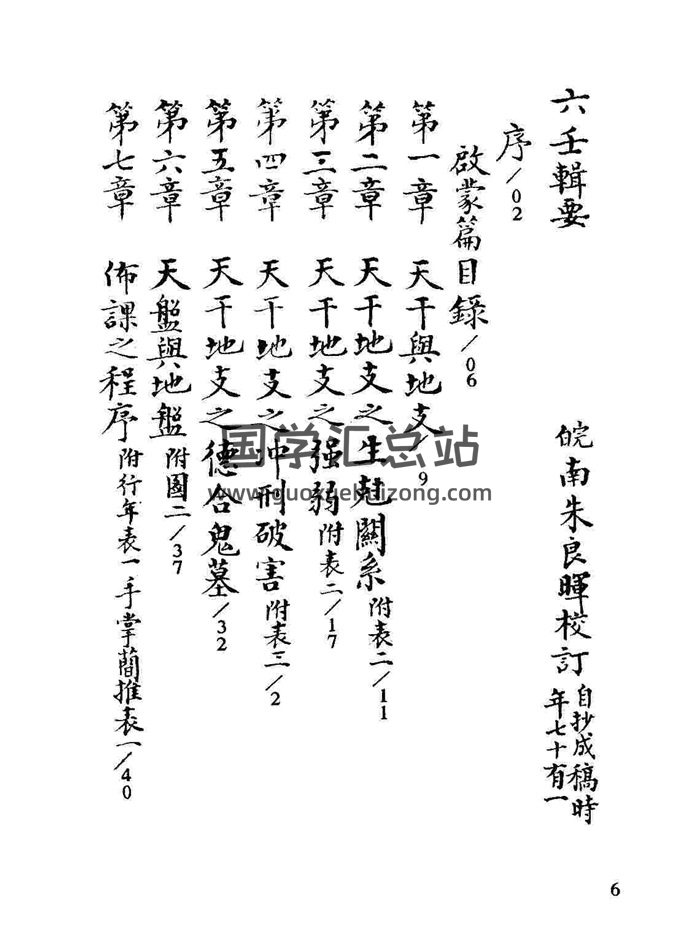 六壬輯要
皖南朱良暉校訂 自抄成稿時年七十有一
序/02
啟蒙篇目錄/06
第一章 天干與地支/9
第二章 天干地支之生尅關系 附表二/11
第三章 天干地支之强弱 附表二/17
第四章 天干地支之冲刑破害 附表三/2
第五章 天干地支之德合鬼墓/32
第六章 天盤與地盤 附圖二/37
第七章 佈課之程序 附行年表一手掌簡推表一/40
国学汇总站
www.guoxuehuizong.com
6